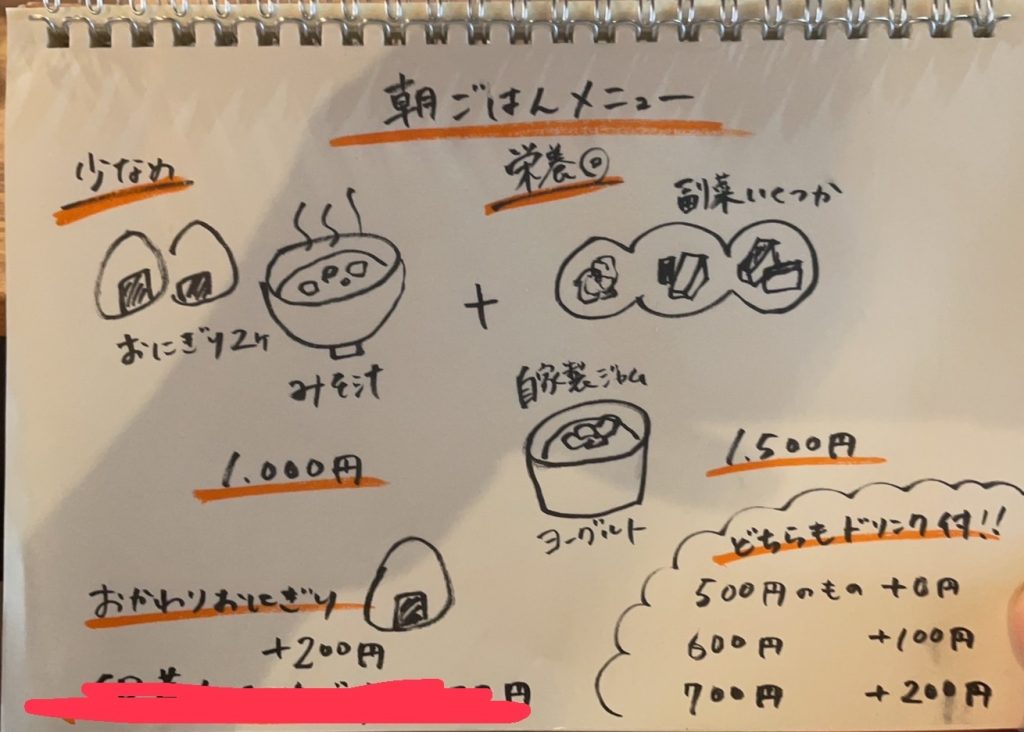 朝ごはんメニュー
少なめ
おにぎり2ヶ
みそ汁
1.000円
栄養◎
+
副菜いくつか
自家製ジャム
ヨーグルト
1.500円
おかわりおにぎり
+200円
円
どちらもドリンク付!!
500円のもの +0円
600円 +100円
700円 +200円